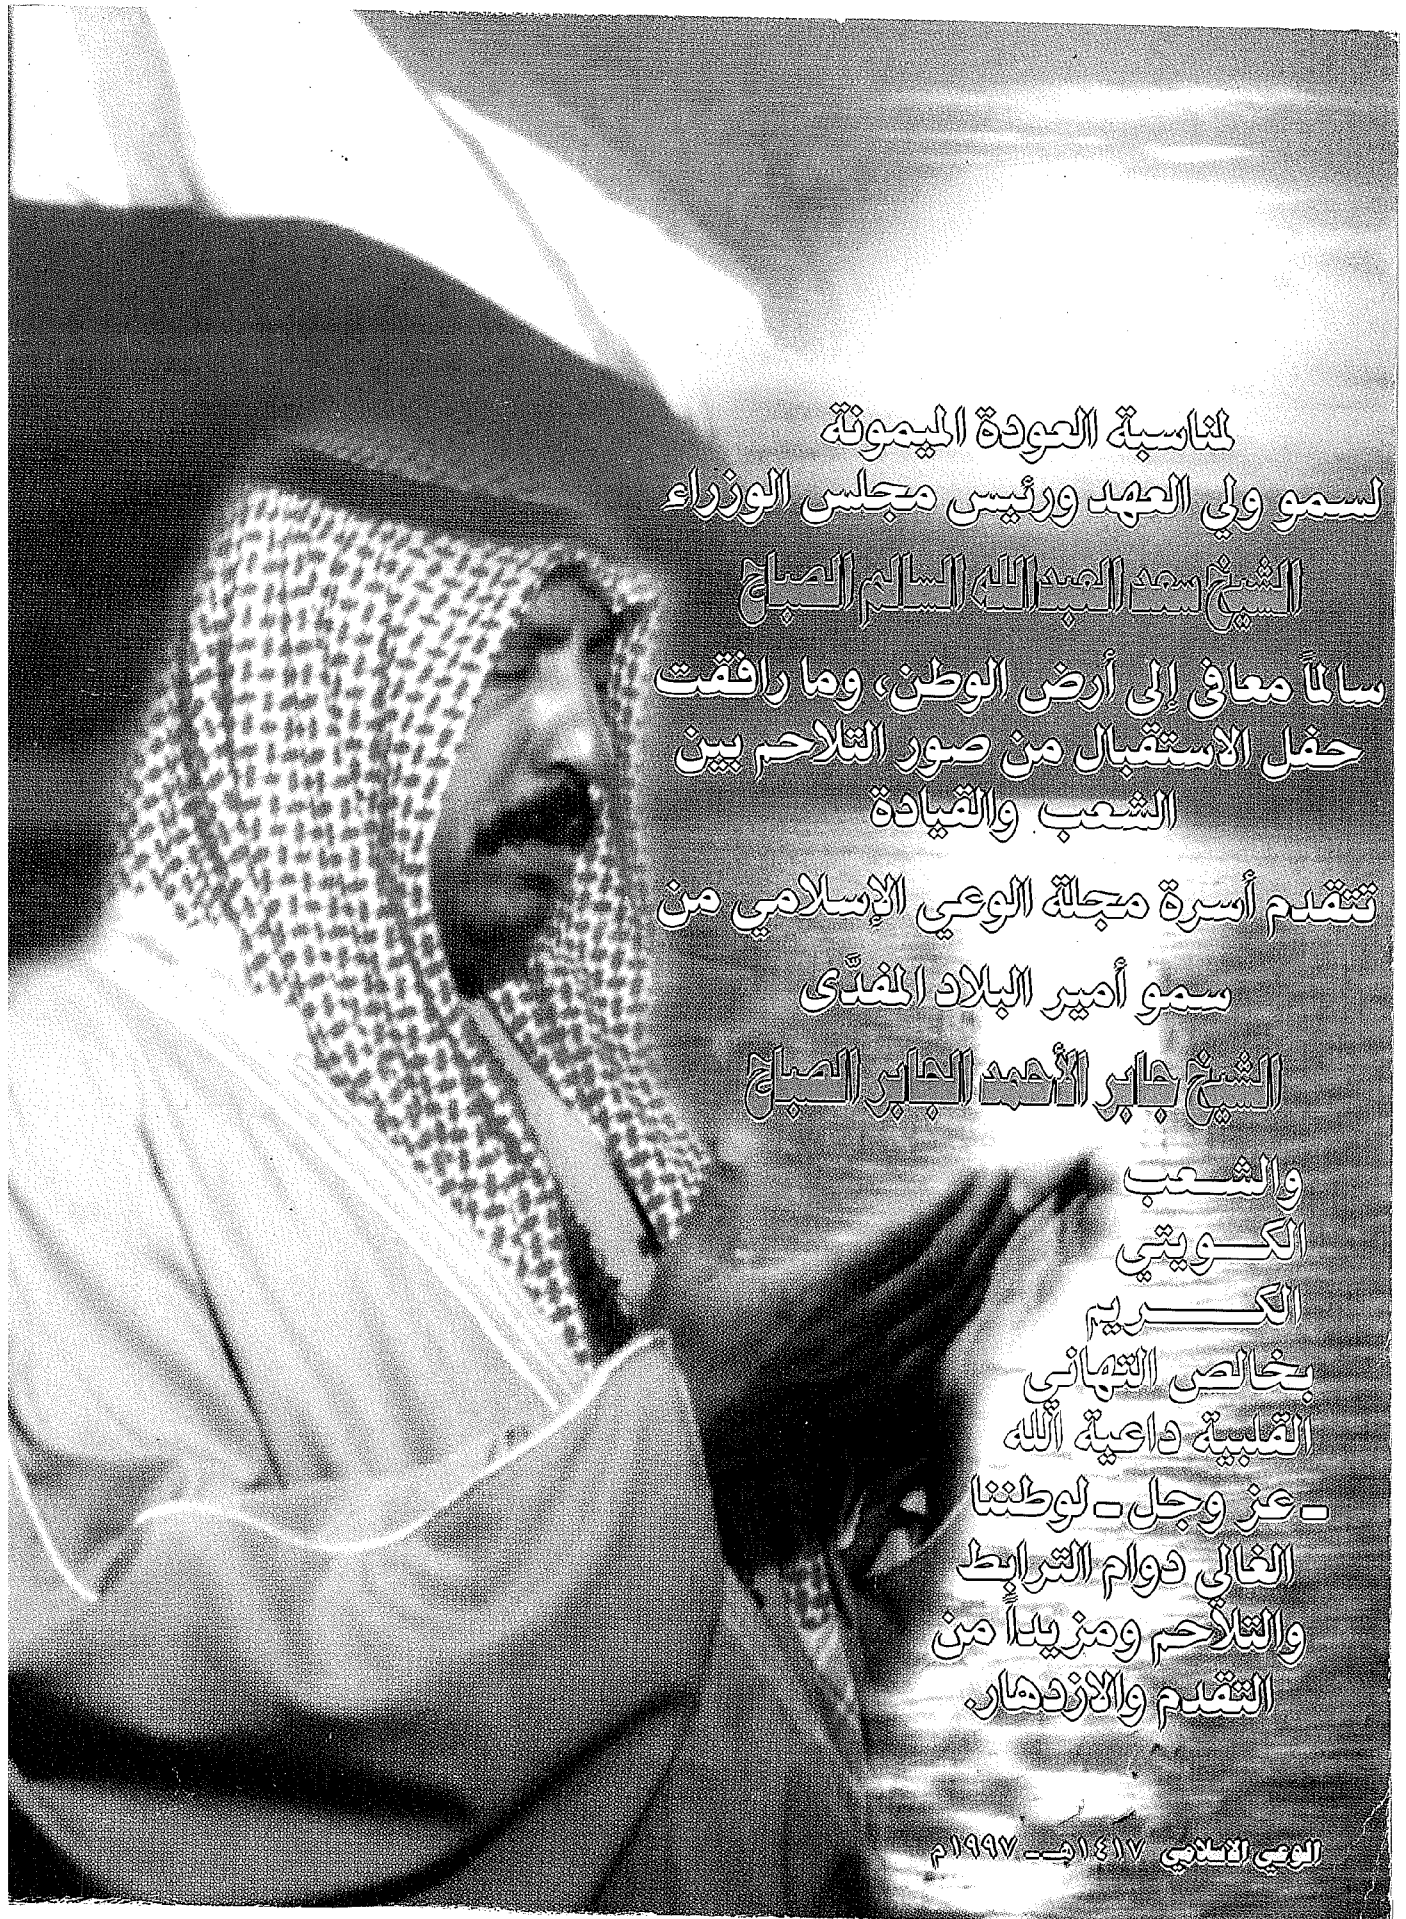 لمناسبة العودة الميمونة
لسمو ولي العهد ورئيس مجلس الوزراء
الشيخ سعد العبدالله السالم الصباح
سالماً معافى إلى أرض الوطن، وما رافقت
حفل الاستقبال من صور التلاحم بين
الشعب والقيادة
تتقدم أسرة مجلة الوعي الإسلامي من
سمو أمير البلاد المفدَّى
الشيخ جابر الأحمد الجابر الصباح
والشعب
الكويتي
الكريم
بخالص التهاني
القلبية داعية الله
ـ عز وجل ـ لوطننا
الغالي دوام الترابط
والتلاحم ومزيداً من
التقدم والازدهار.
الوعي الاسلامي ١٤١٧هـ ـ ١٩٩٧م